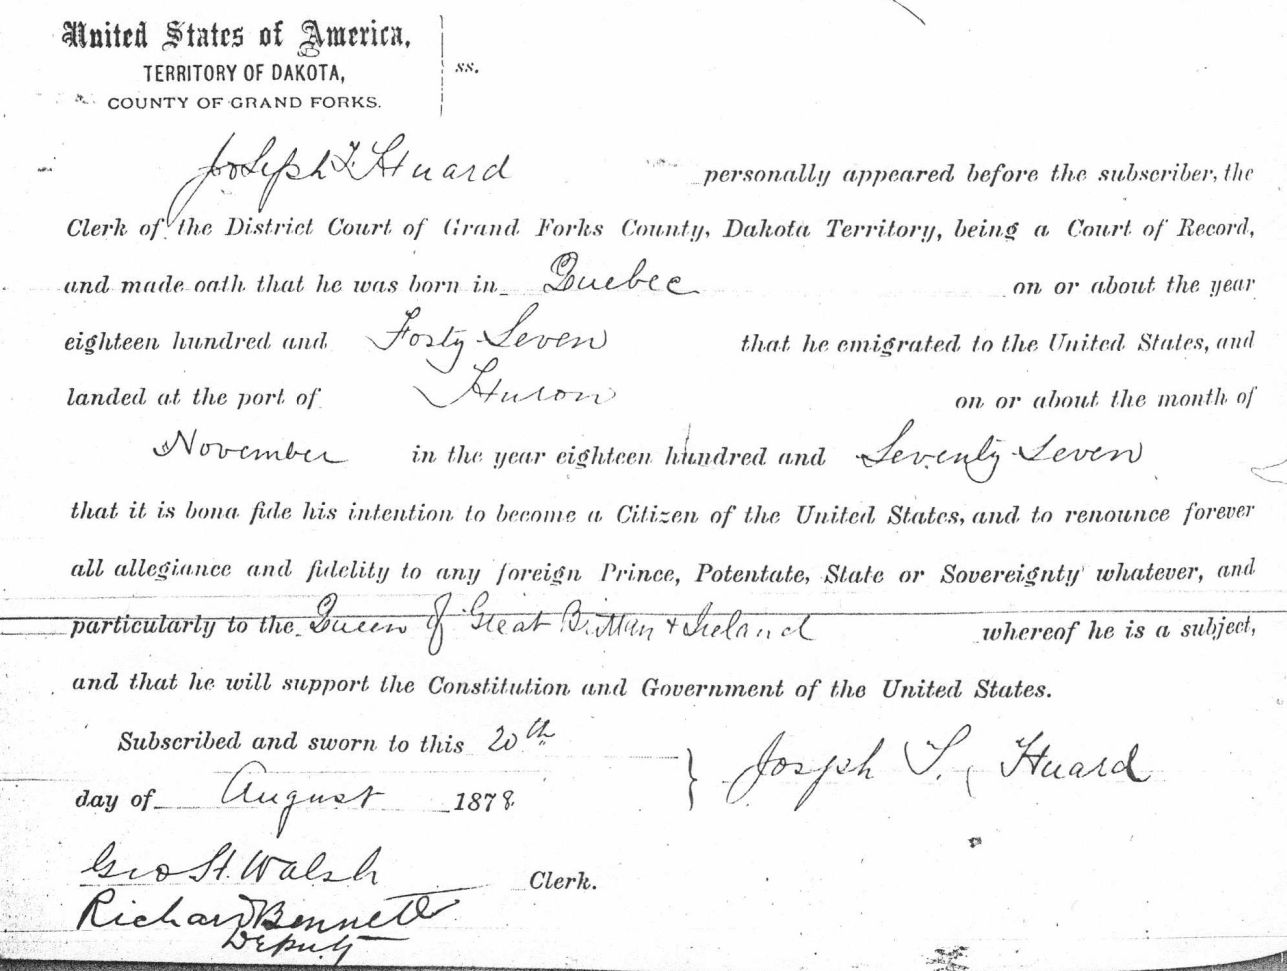 United States of America,
TERRITORY OF DAKOTA, ss.
COUNTY OF GRAND FORKS.
Joseph T. Huard personally appeared before the subscriber, the
Clerk of the District Court of Grand Forks County, Dakota Territory, being a Court of Record,
and made oath that he was born in Quebec on or about the year
eighteen hundred and Forty-Seven that he emigrated to the United States, and
landed at the port of Huron on or about the month of
November in the year eighteen hundred and Seventy-Seven
that it is bona fide his intention to become a Citizen of the United States, and to renounce forever
all allegiance and fidelity to any foreign Prince, Potentate, State or Sovereignty whatever, and
particularly to the Queen of Great Brittan & Ireland whereof he is a subject,
and that he will support the Constitution and Government of the United States.
Subscribed and sworn to this 20th
day of August 1878 } Joseph T. Huard
Geo H. Walsh Clerk.
Richard Bennett
Deputy